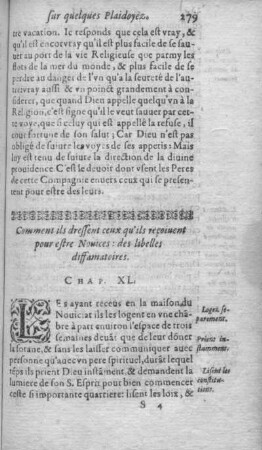 sur quelques Plaidoyez. 279
ne vacation. Ie responds que cela est vray, &
qu'il est encor vray qu'il est plus facile de se sau-
uer au port de la vie Religieuse que parmy les
flots de la mer du monde, & plus facile de se
perdre au danger de l'vn qu'à la seureté de l'au-
considerer, que quand Dieu appelle quelqu'vn à la
Religion, c'est signe qu'il le veut sauuer par cet-
te voye, & si celuy qui est appellé la refuse, il
court fortune de son salut; Car Dieu n'est pas
obligé de suiure les voyes de ses appetis: Mais
luy est tenu de suiure la direction de la diuine
prouidence C'est le deuoir dont vsent les Peres
de cette Compagnie enuers ceux qui se presen-
tent pour estre des leurs.
Comment ils dressent ceux qu'ils reçoiuent
pour estre Nouices: des libelles
diffamatoires.
CHAP. XL.
LEs ayant receus en la maison du
Nouiciat ils les logent en vne chã-
bre à part enuiron l'espace de trois
semaines
& sans les laisser communiquer auec
personne qu'auec vn pere spirituel, durãt lequel
tẽps ils prient Dieu instãment, & demandent la
lumiere de son S. Esprit pour bien commencer
ceste si importante quarriere: lisent les loix, &
S 4
Logez se-
parement.
Prient in-
stamment.
Lisent les
constitu-
tions.